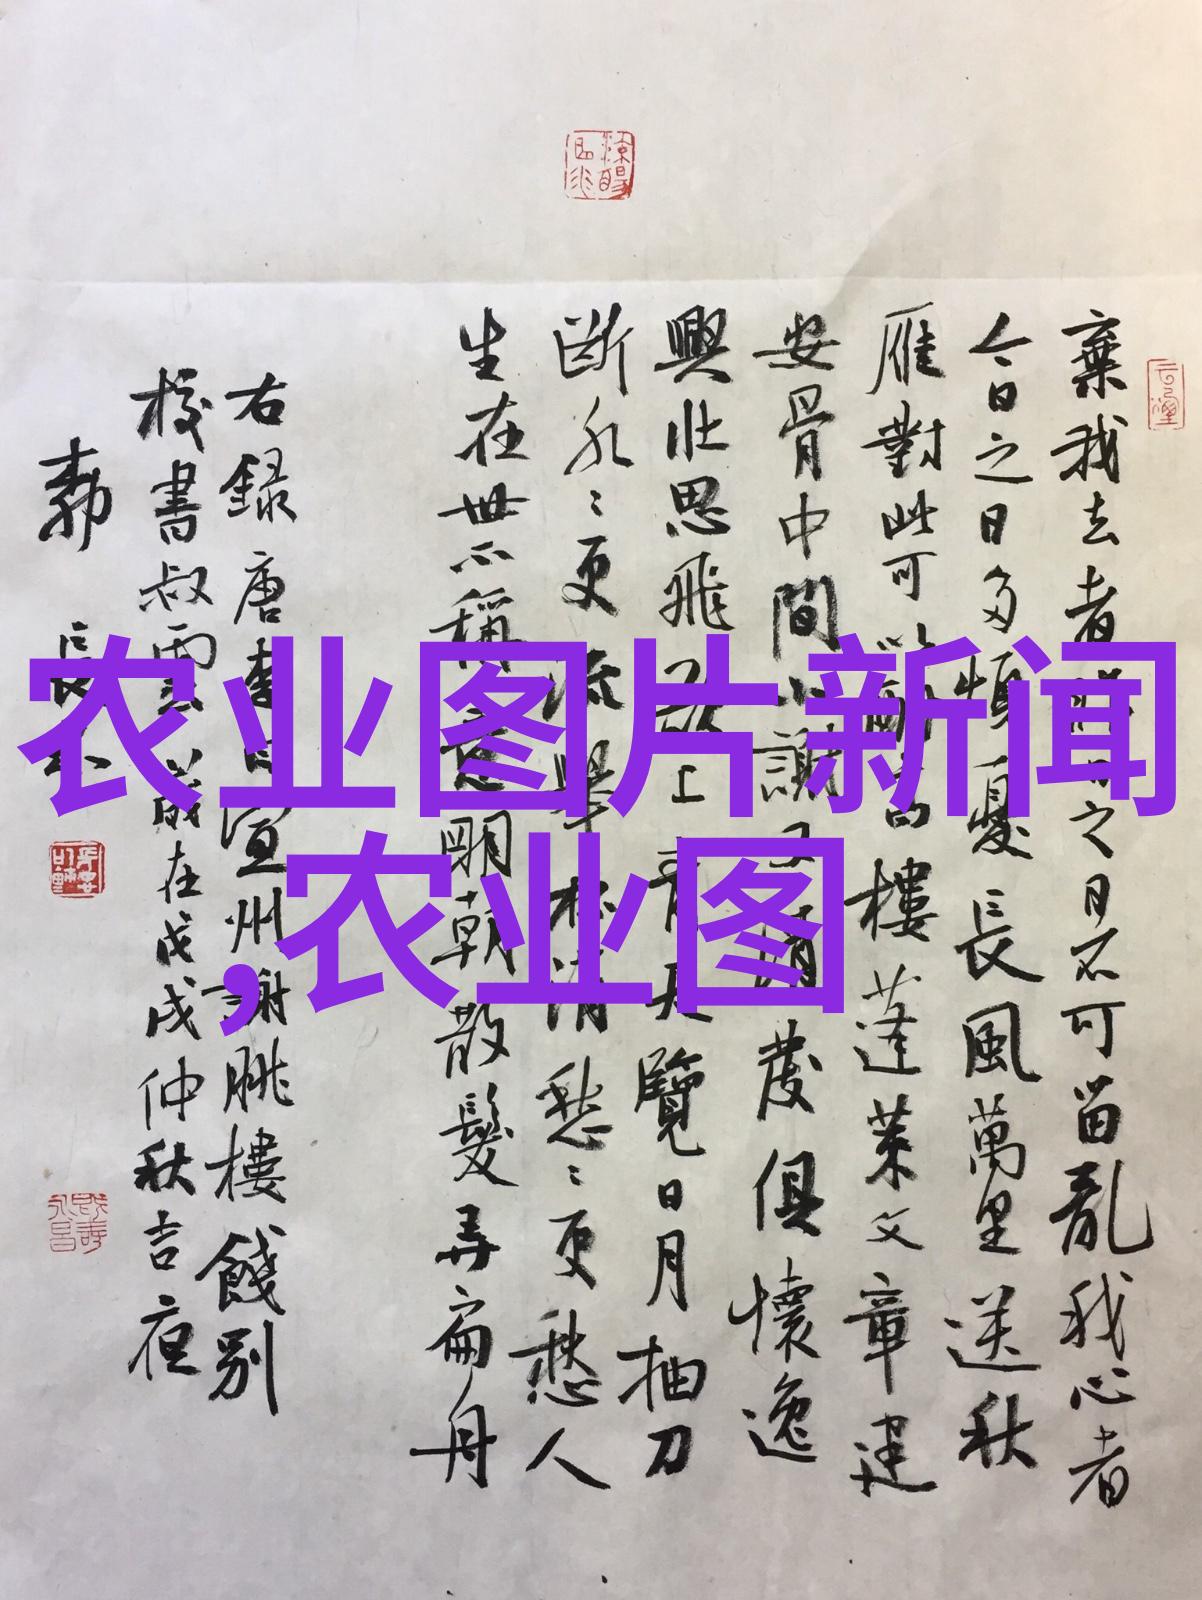 棄我去者昨日之日不可留亂我心者
今日之日多煩憂長風萬里送秋
雁對此可以酣高樓蓬萊文章建
安骨中間小謝又清發俱懷逸
興壯思飛欲上青天覽日月抽刀
斷水〻更流舉杯清愁〻更愁人
生在世不稱意明朝散髮弄扁舟
右録唐李白宣州謝朓樓餞別
校書叔雲歲在戊戌仲秋吉夜
农业图片新闻
,农业图